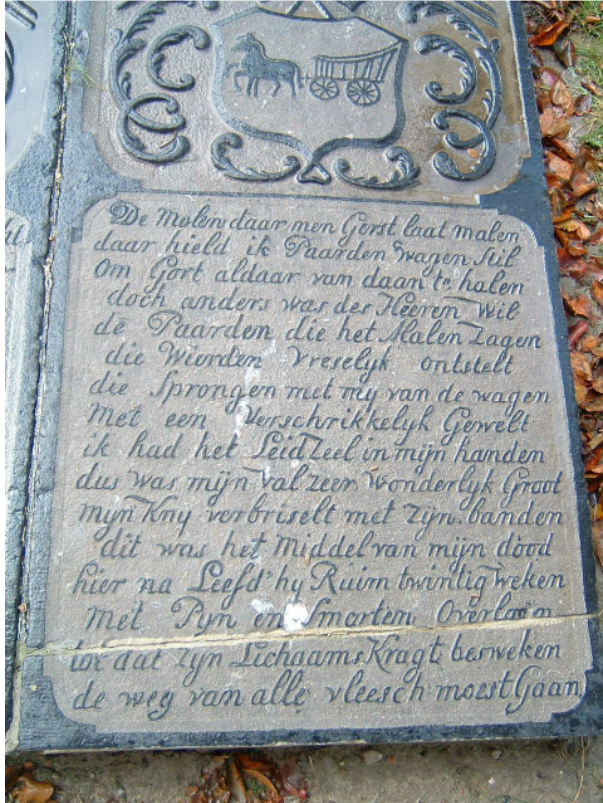 De Molen daar men Gerst laat malen
daar hield ik Paarden wagen stil
Om Gort aldaar van daan te halen
doch anders was des Heeren Wil
de Paarden die het Malen Zagen
die Wierden Vreselyk ontstelt
die Sprongen met my van de wagen
Met een Verschrikkelyk Gewelt
ik had het Leidzeel in mijn handen
dus was mijn val zeer Wonderlyk Groot
myn Kny verbriselt met Zijn banden
dit was het Middel van mijn dood
hier na Leefd' hy Ruim twintig weken
Met Pyn en Smarten
tot dat Zyn Lichaams Kragt besweken
de weg van alle vleesch moest Gaan